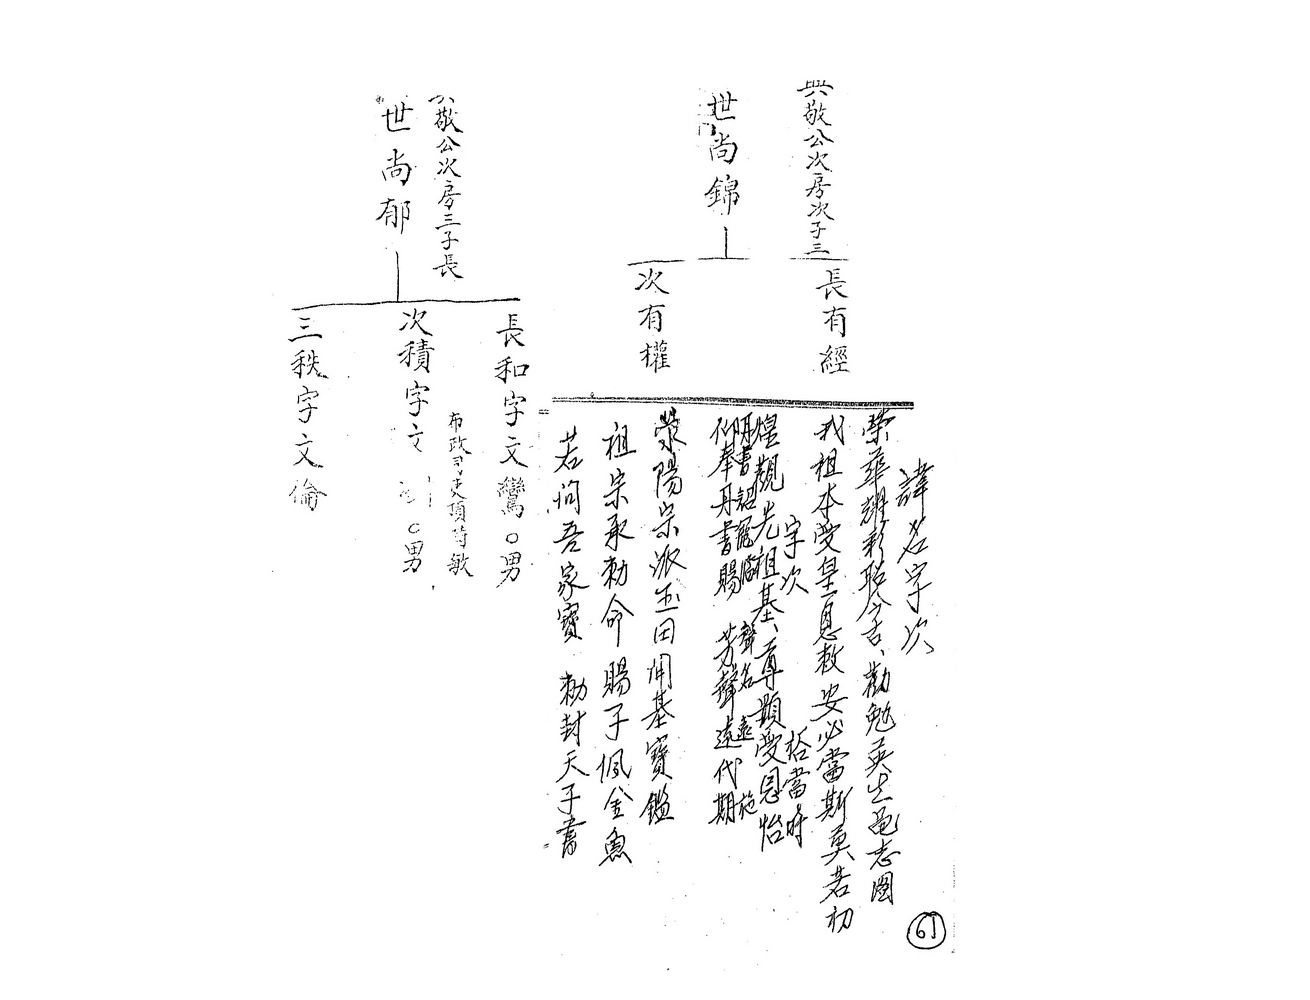 興敬公次房次子三
世尚錦
長有經
次有權
敬公次房三子長
世尚郁
長和字文鸞○男
布政司吏頂首敏
次積字文
男
三秩字文倫
諱名字次
榮華朝彩昭今古、勸勉英生志圖
我祖本受皇恩敕安必當斯莫若初
字次
恰當時
煌觀先祖基、尊顕受恩怡
丹書詔寵臨 聲名遠施
仰奉丹書賜 芳聲遠代期
滎陽宗派玉田開基寶鑑
祖宗承勅命賜子佩金魚
若問吾家寶 勅封天子書
61